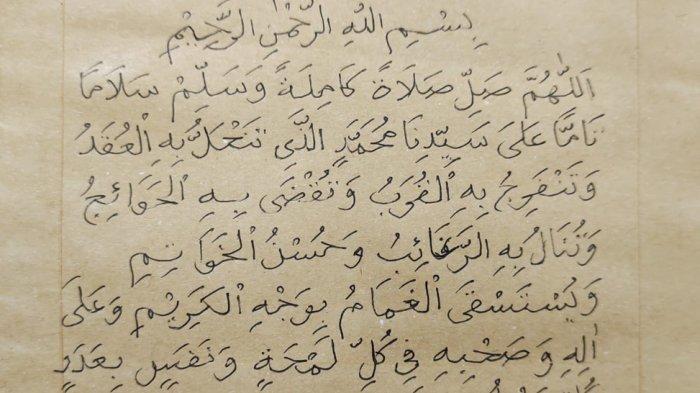 بِسْمِ اللهِ الرَّحْمٰنِ الرَّحِيْمِ
اَللّٰهُمَّ صَلِّ صَلَاةً كَامِلَةً وَسَلِّمْ سَلَامًا
تَامًّا عَلَى سَيِّدِنَا مُحَمَّدٍ الَّذِى تَنْحَلُّ بِهِ الْعُقَدُ
وَتَنْفَرِجُ بِهِ الْقُرَبُ وَتُقْضَى بِهِ الْحَوَائِجُ
وَتُنَالُ بِهِ الرَّغَائِبُ وَحُسْنُ الْخَوَاتِمِ
وَيُسْتَسْقَى الْغَمَامُ بِوَجْهِهِ الْكَرِيْمِ وَعَلَى
اٰلِهِ وَصَحْبِهِ فِى كُلِّ لَمْحَةٍ وَنَفَسٍ بِعَدَدِ